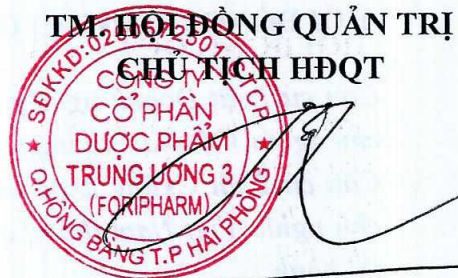 TM. HỘI ĐỒNG QUẢN TRỊ
CHỦ TỊCH HĐQT
SĐKKD:0200572501-CTCP
CÔNG TY
CỔ PHẦN
DƯỢC PHẨM
TRUNG ƯƠNG 3
(FORIPHARM)
Q.HỒNG BÀNG T.P HẢI PHÒNG